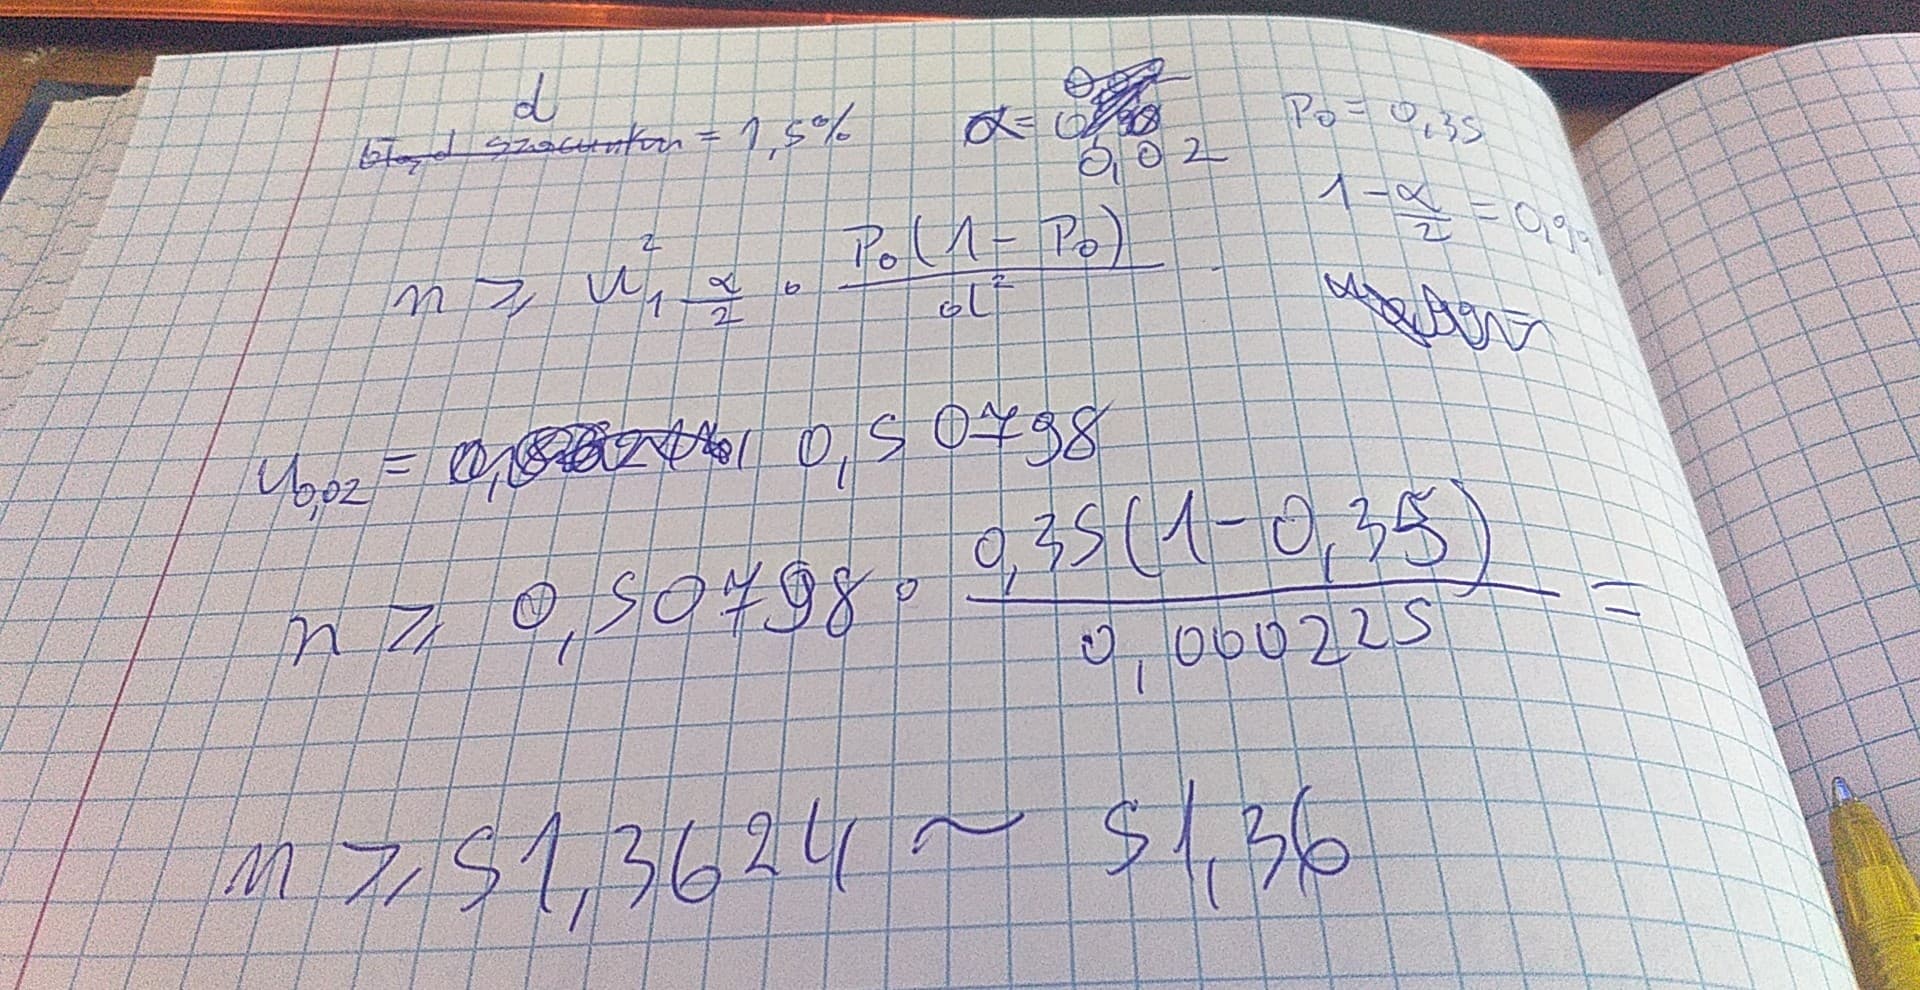 d
błąd szacunkon = 1,5% α = 0,02 P₀ = 0,35
1 - α/2 = 0,99
n ≥ u²₁ α/2 · P₀(1 - P₀)/d²
u₀,₀₂ = 0,50798
n ≥ 0,50798 · 0,35(1-0,35)/0,000225 =
n ≥ 51,3624 ~ 51,36